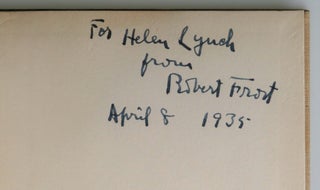 For Helen Lynch
from
Robert Frost
April 8 1935